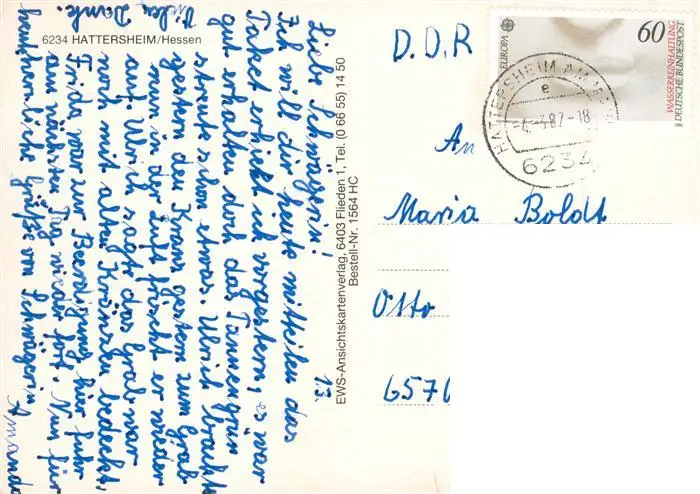 6234 HATTERSHEIM/Hessen
1.3.
Liebe Schwägerin!
Ich will dir heute mitteilen das
Paket erhielt ich vorgestern, es war
gut erhalten doch das Tannengrün
streute schon etwas. Ulrich bracht
gestern den Kranz gestern zum Grab
nun in der Luft frischt er wieder
auf. Ulrich sagte das Grab war
noch mit alten Kränzen bedeckt.
Frida war zur Beerdigung hier fuhr
am nächsten Tag wieder fort. Nun für
heute herzliche Grüße von Schwägerin Amanda
Vielen Dank.
EWS-Ansichtskartenverlag, 6403 Flieden 1, Tel. (0 66 55) 14 50
Bestell-Nr. 1564 HC
D.D.R
EUROPA
60
WASSERREINHALTUNG
DEUTSCHE BUNDESPOST
HATTERSHEIM AM
e
-4.-3.87-18
6234
An
Maria Boldt
Otto
6570